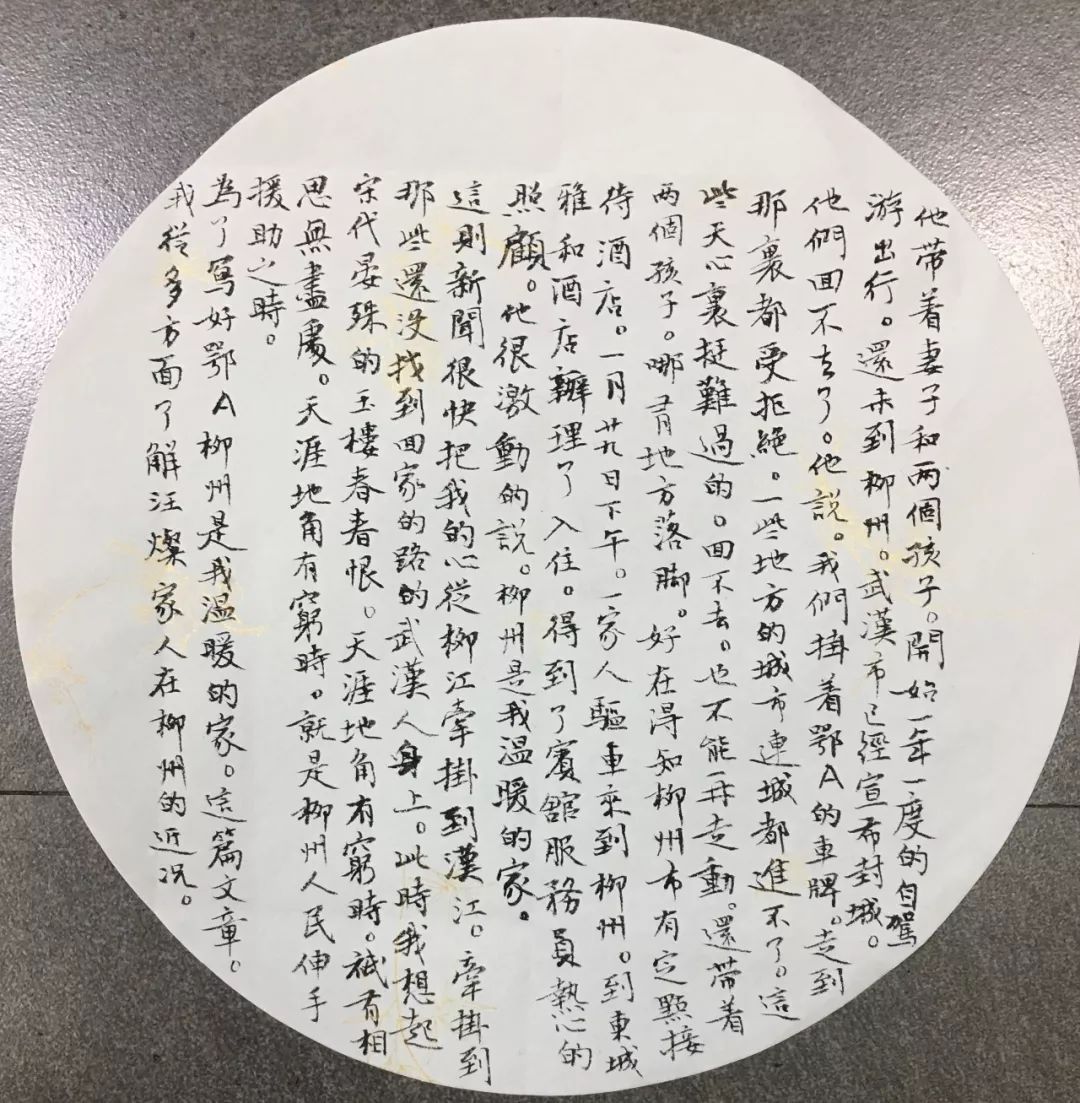 他带着妻子和两個孩子。開始一年一度的自駕
游出行。還未到柳州。武漢市已經宣布封城。
他們回不去了。他說。我們掛着鄂A的車牌。走到
那裏都受拒絕。一些地方的城市連城都進不了。這
些天心裏挺難過的。回不去。也不能再走動。還带着
两個孩子。哪有地方落脚。好在得知柳州市有定點接
待酒店。一月廿九日下午。一家人驅車來到柳州。到東城
雅和酒店辦理了入住。得到了賓館服務員熱心的
照顧。他很激動的說。柳州是我温暖的家。
這則新聞很快把我的心從柳江牽掛到漢江。牽掛到
那些還没找到回家的路的武漢人身上。此時我想起
宋代晏殊的玉樓春春恨。天涯地角有窮時。祇有相
思無盡處。天涯地角有窮時。就是柳州人民伸手
援助之時。
為了寫好鄂A柳州是我温暖的家。這篇文章。
我從多方面了解汪燦家人在柳州的近况。